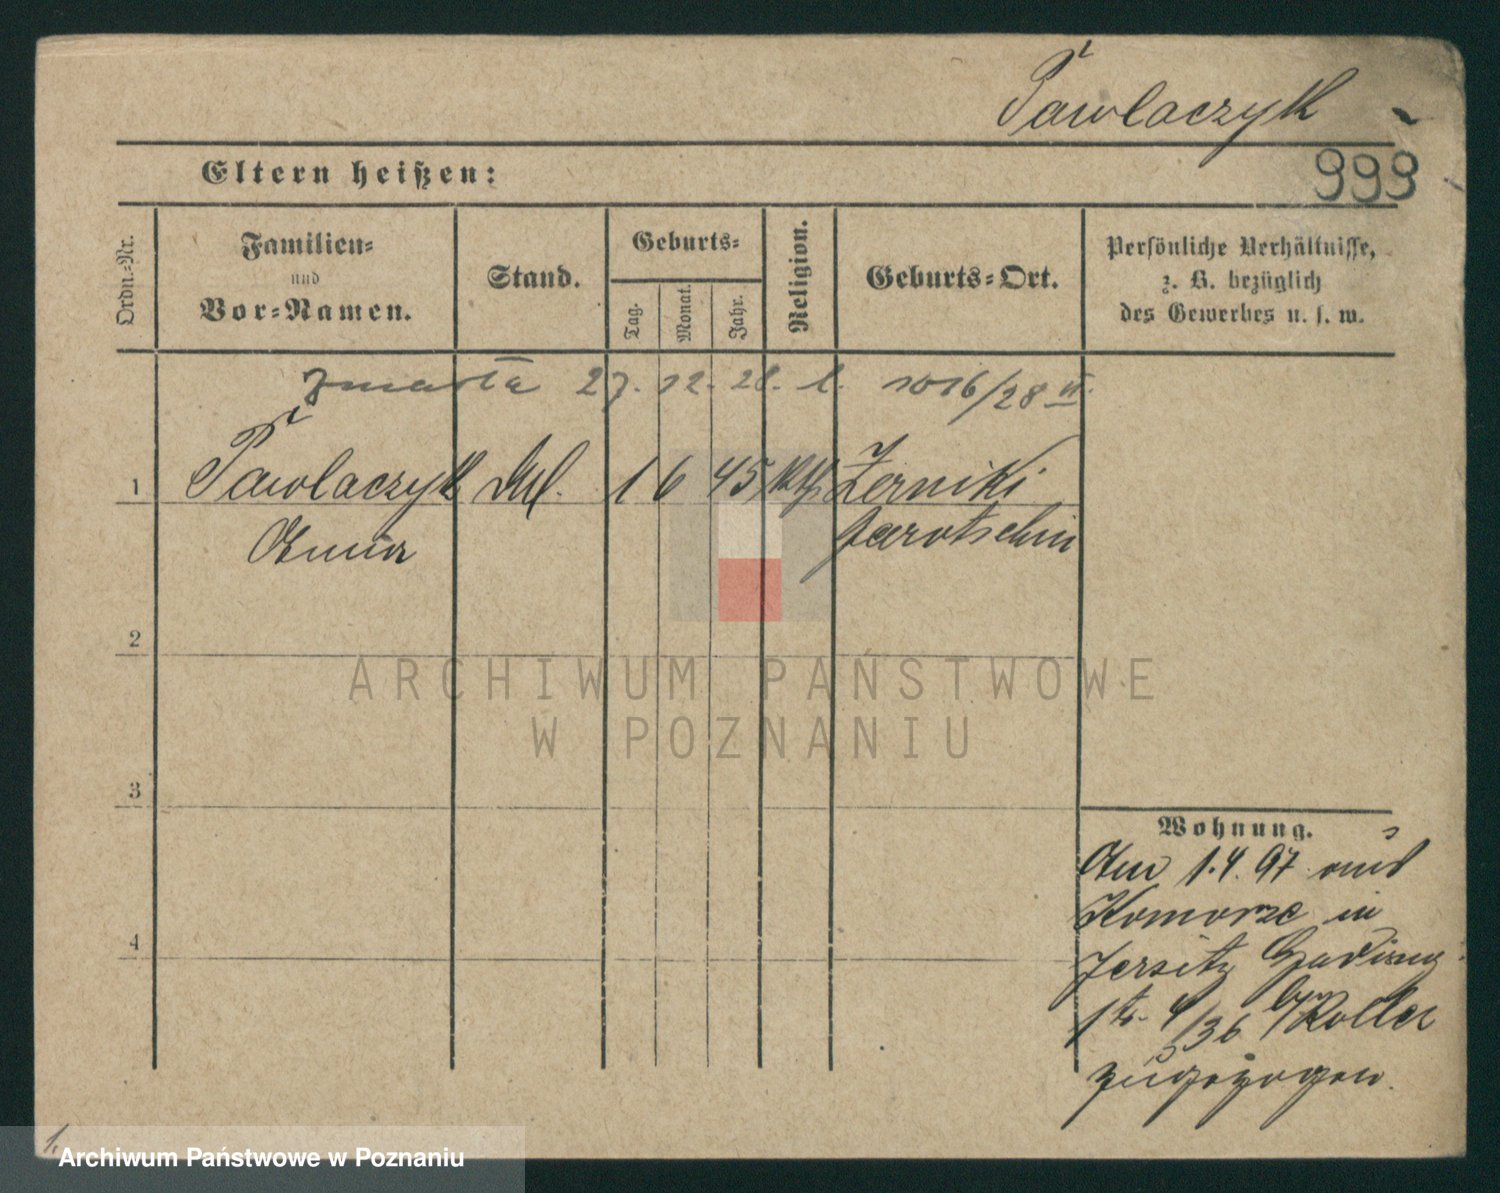 Pawlaczyk
999
Eltern heißen:
Ordn.-Nr.
Familien-
und
Vor-Namen.
Stand.
Geburts-
Tag.
Monat.
Jahr.
Religion.
Geburts-Ort.
Persönliche Verhältnisse,
z. B. bezüglich
des Gewerbes u. s. w.
zmarła 27. 12. 28. l. 1016/28 II.
1 Pawlaczyk 1 6 45 kth Zerniki
Anna Jarotschin
2
3
4
Wohnung.
Am 1.4.97 aus
Komorze in
Jersitz Hedwig
str. 4/36 b/ Koller
zugezogen.
1.
ARCHIWUM PAŃSTWOWE
W POZNANIU
Archiwum Państwowe w Poznaniu